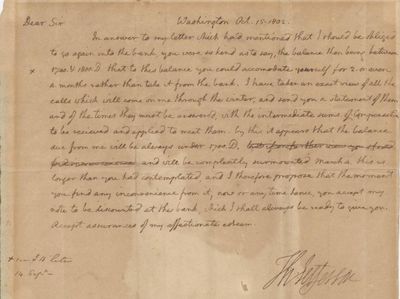 Dear Sir Washington Oct. 15. 1802.
In answer to my letter which had mentioned that I should be obliged
to go again into the bank, you were so kind as to say, the balance then being between
× 1700. & 1800. D. that to this balance you could accomodate yourself for 2. or even
4 months rather than take it from the bank. I have taken an exact view of all the
calls which will come on me through the winter, and send you a statement of them
and of the times they must be answered, with the intermediate sums of compensation
to be recieved and applied to meet them. by this it appears that the balance
due from me will be always under 1700. D.
and will be completely surmounted March 2. this is
longer than you had contemplated and I therefore propose that the moment
you find any inconvenience from it, now or any time hence, you accept my
note to be discounted at the bank, which I shall always be ready to give you.
Accept assurances of my affectionate esteem.
Th Jefferson
×
14 Sep